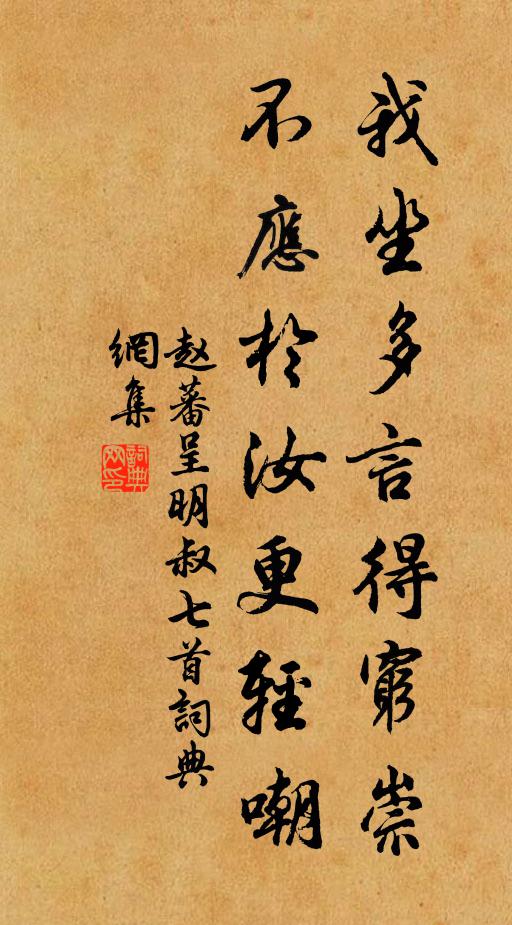 我坐多言得窮祟
不應於汝更輕嘲
赵蕃呈明叔七首詞典
網集
詞典
网印